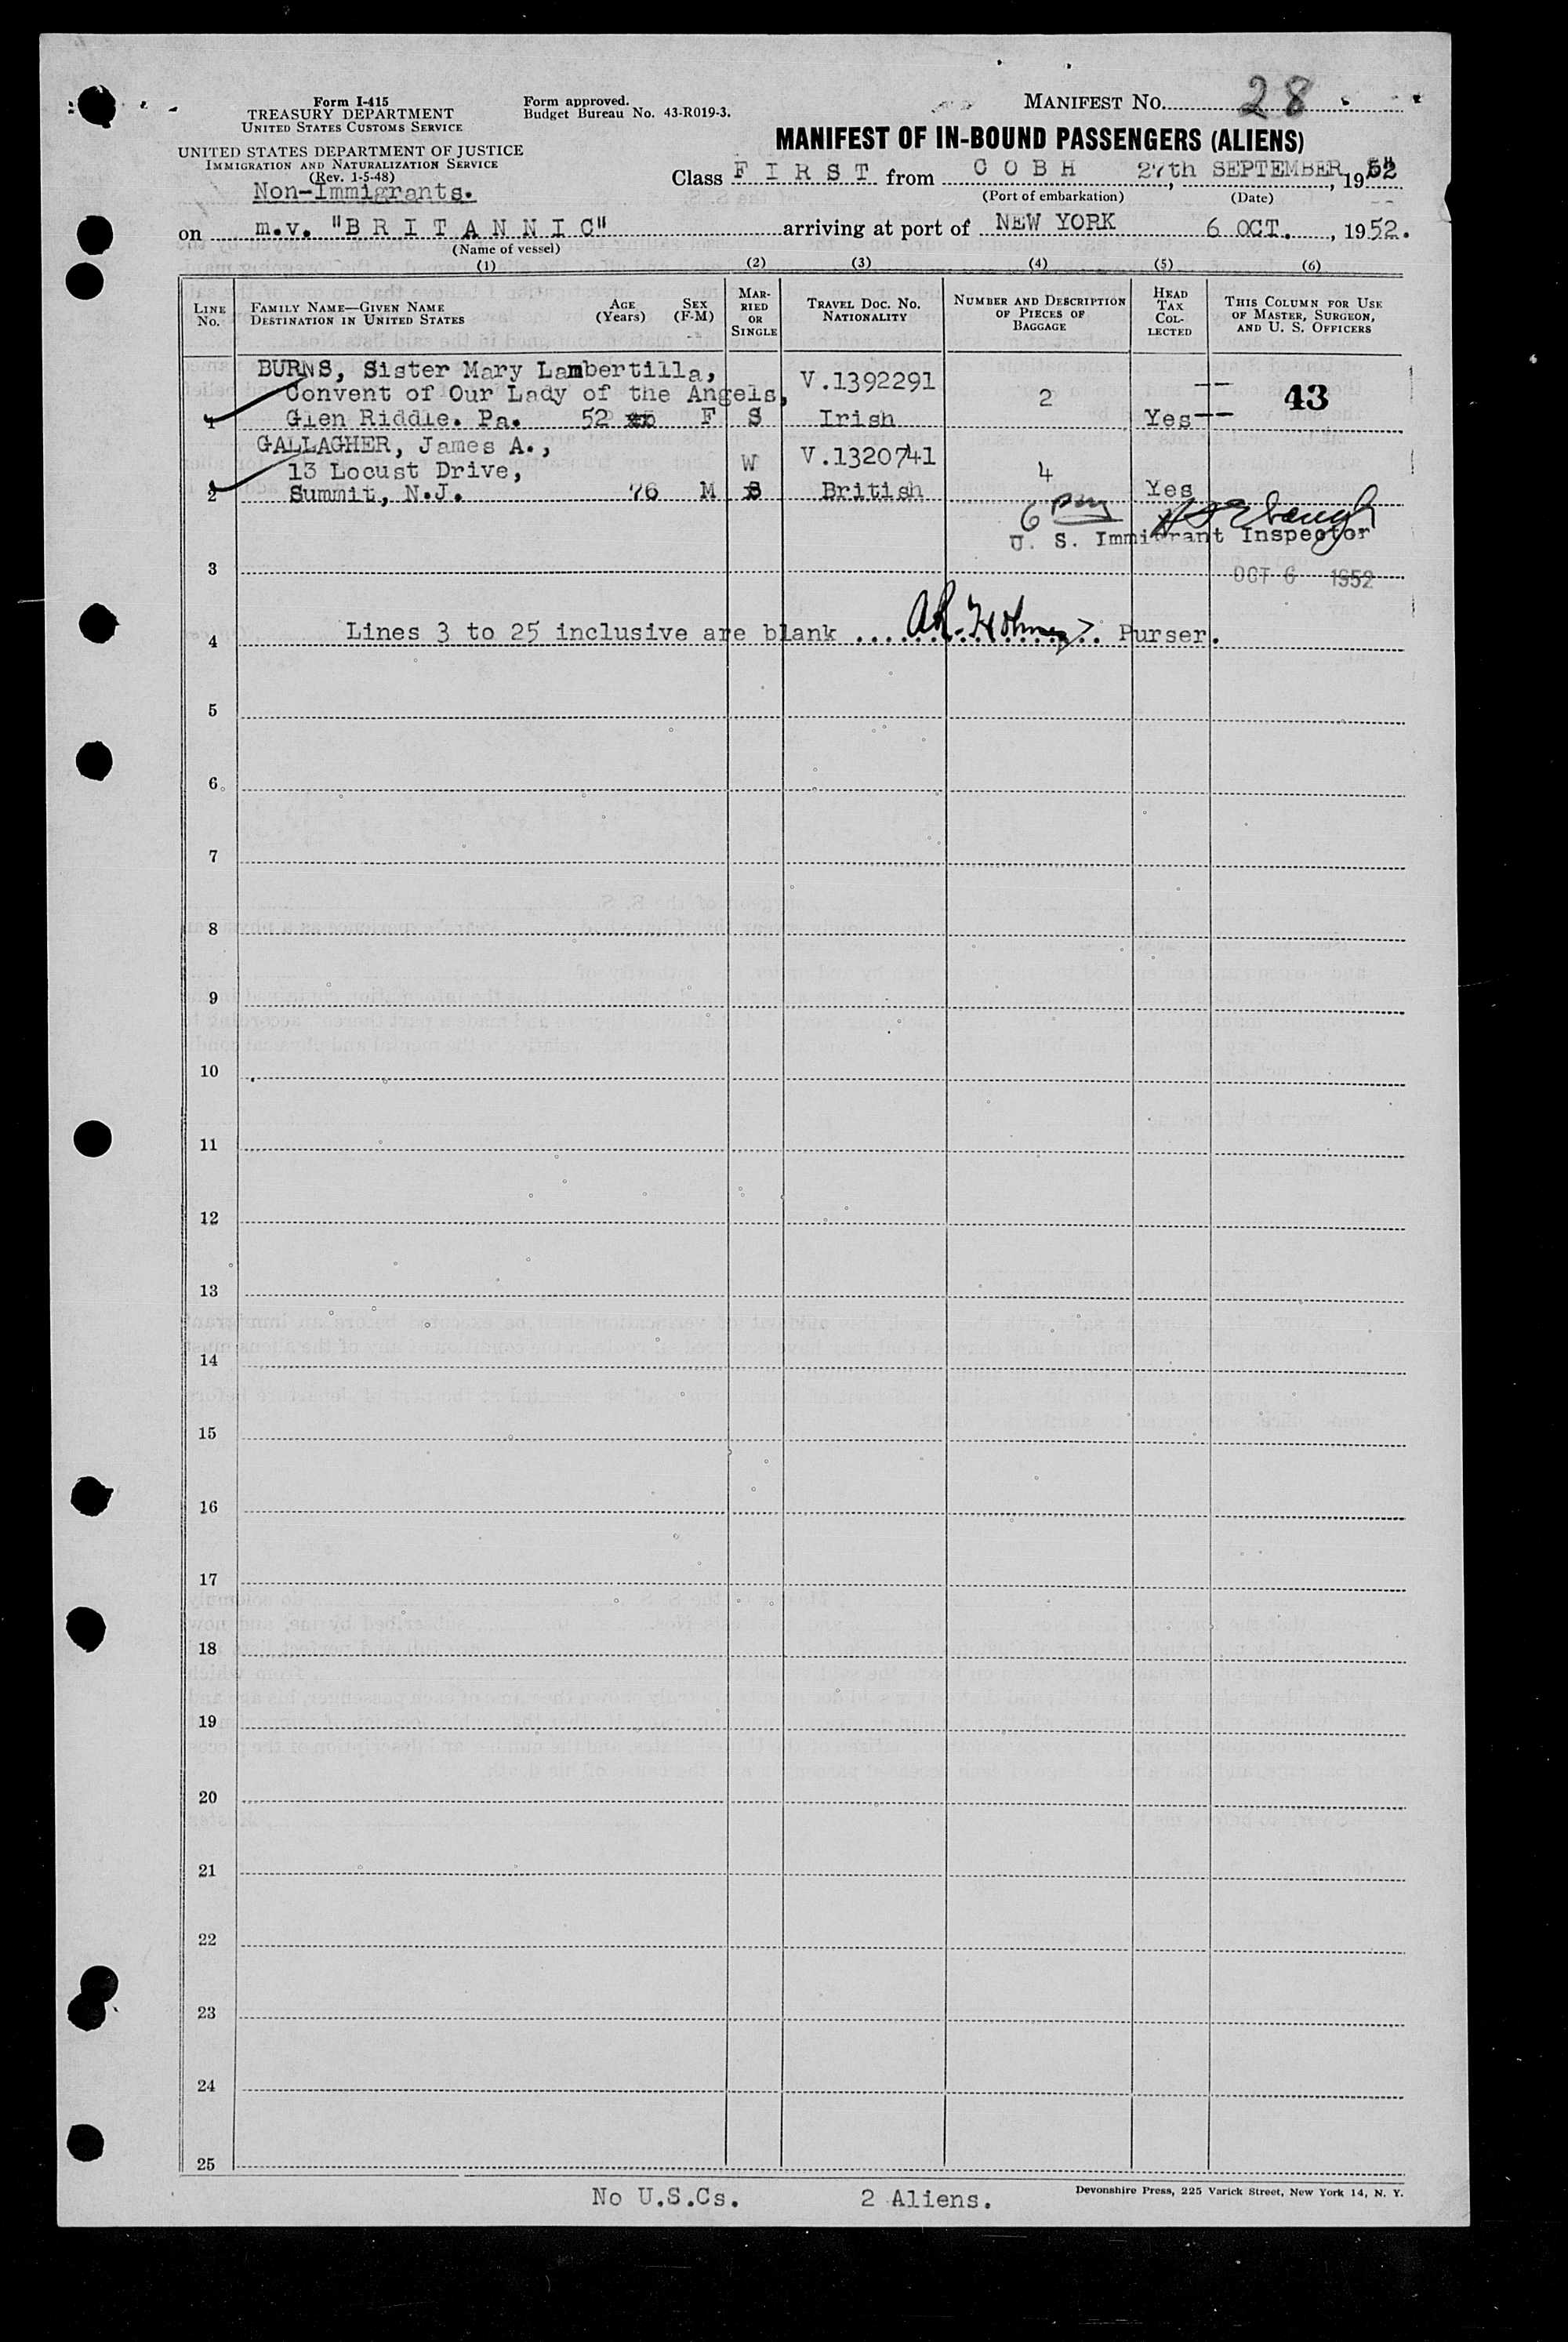 Form I-415
TREASURY DEPARTMENT
UNITED STATES CUSTOMS SERVICE
UNITED STATES DEPARTMENT OF JUSTICE
IMMIGRATION AND NATURALIZATION SERVICE
(Rev. 1-5-48)
Non-Immigrants.
Form approved.
Budget Bureau No. 43-R019-3.
MANIFEST NO. 28
MANIFEST OF IN-BOUND PASSENGERS (ALIENS)
Class F I R S T from C O B H 27th SEPTEMBER, 1952
(Port of embarkation) (Date)
on m.v. "B R I T A N N I C" arriving at port of NEW YORK 6 OCT., 1952.
(Name of vessel)
(1) (2) (3) (4) (5) (6)
LINE NO.
FAMILY NAME—GIVEN NAME
DESTINATION IN UNITED STATES
AGE (Years)
SEX (F-M)
MARRIED OR SINGLE
TRAVEL DOC. NO.
NATIONALITY
NUMBER AND DESCRIPTION OF PIECES OF BAGGAGE
HEAD TAX COLLECTED
THIS COLUMN FOR USE OF MASTER, SURGEON, AND U. S. OFFICERS
BURNS, Sister Mary Lambertilla, V.1392291
Convent of Our Lady of the Angels, 2 43
1 Glen Riddle. Pa. 52 F S Irish Yes
GALLAGHER, James A., W V.1320741
13 Locust Drive, 4
2 Summit, N.J. 76 M S British Yes
6
U. S. Immigrant Inspector
3 OCT 6 1952
4 Lines 3 to 25 inclusive are blank Purser.
5
6
7
8
9
10
11
12
13
14
15
16
17
18
19
20
21
22
23
24
25
No U.S.Cs. 2 Aliens.
Devonshire Press, 225 Varick Street, New York 14, N. Y.